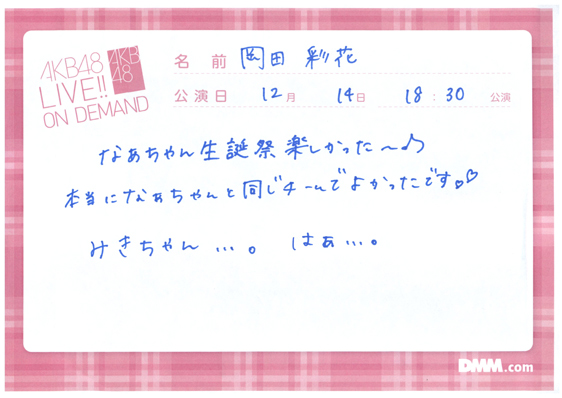 AKB48
LIVE!!
ON DEMAND
AKB
48
名前 岡田 彩花
公演日 12月 14日 18:30 公演
なあちゃん生誕祭楽しかった〜♪
本当になあちゃんと同じチームでよかったです♡♡
みきちゃん…。 はぁ…。
DMM.com